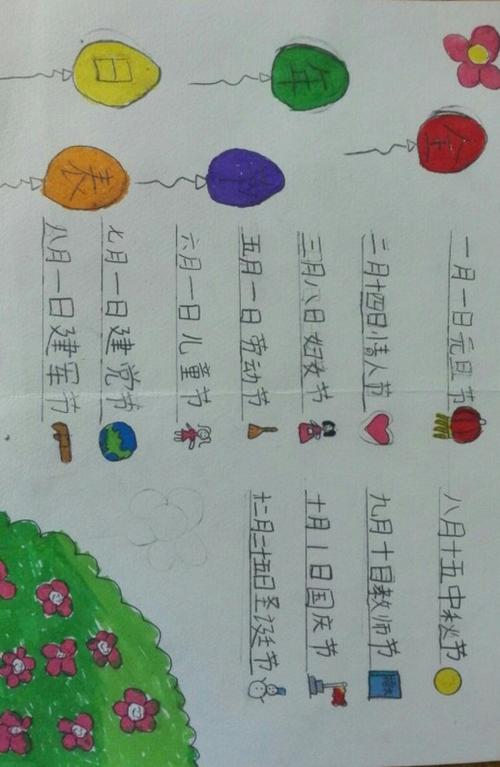 全年节日表
一月一日元旦节
二月十四日情人节
三月八日妇女节
五月一日劳动节
六月一日儿童节
七月一日建党节
八月一日建军节
八月十五中秋节
九月十日教师节
十月1日国庆节
十二月二十五日圣诞节